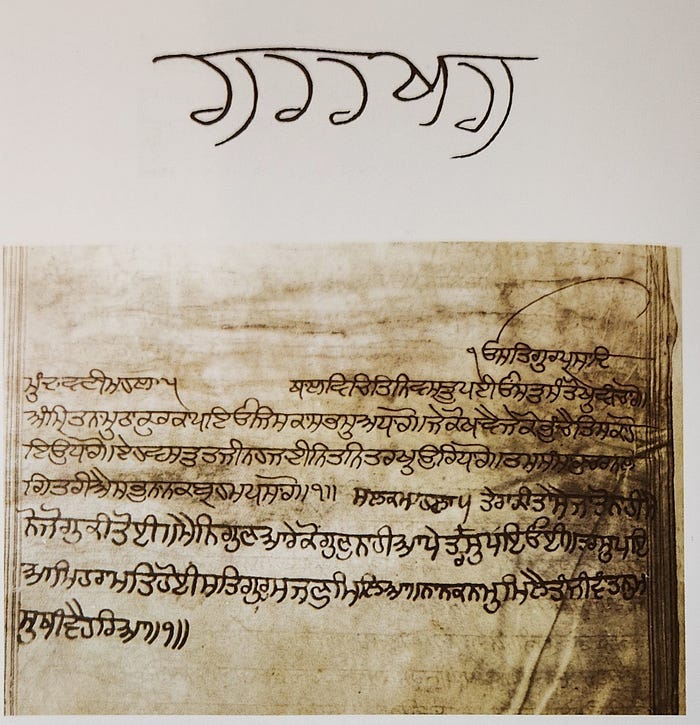 ੧ਓ ਸਤਿਗੁਰਪ੍ਰਸਾਦਿ
ਮੁੰਦਾਵਣੀ ਮਹਲਾ ੫ ਥਾਲ ਵਿਚਿ ਤਿਨਿ ਵਸਤੁ ਪਈਓ ਸਤੁ ਸੰਤੋਖੁ ਵੀਚਾਰੋ॥
ਅੰਮ੍ਰਿਤ ਨਾਮੁ ਠਾਕੁਰ ਕਾ ਪਇਓ ਜਿਸ ਕਾ ਸਭਸੁ ਅਧਾਰੋ॥ ਜੇ ਕੋ ਖਾਵੈ ਜੇ ਕੋ ਭੁੰਚੈ ਤਿਸ ਕਾ ਹੋ
ਇ ਉਧਾਰੋ॥ ਏਹ ਵਸਤੁ ਤਜੀ ਨਹ ਜਾਈ ਨਿਤ ਨਿਤ ਰਖੁ ਉਰਿਧਾਰੋ॥ ਤਮ ਸੰਸਾਰੁ ਚਰਨ ਲ
ਗਿ ਤਰੀਐ ਸਭੁ ਨਾਨਕ ਬ੍ਰਹਮ ਪਸਾਰੋ॥੧॥ ਸਲੋਕ ਮਹਲਾ ੫ ਤੇਰਾ ਕੀਤਾ ਜਾਤੋ ਨਾਹੀ ਮੈ
ਨੋ ਜੋਗੁ ਕੀਤੋਈ॥ ਮੈ ਨਿਗੁਣਆਰੇ ਕੋ ਗੁਣੁ ਨਾਹੀ ਆਪੇ ਤਰਸੁ ਪਇਓਈ॥ ਤਰਸੁ ਪਇ
ਆ ਮਿਹਰਾਮਤਿ ਹੋਈ ਸਤਿਗੁਰੁ ਸਜਣੁ ਮਿਲਿਆ॥ ਨਾਨਕ ਨਾਮੁ ਮਿਲੈ ਤਾਂ ਜੀਵਾਂ ਤਨੁ ਮ
ਨੁ ਥੀਵੈ ਹਰਿਆ॥੧॥